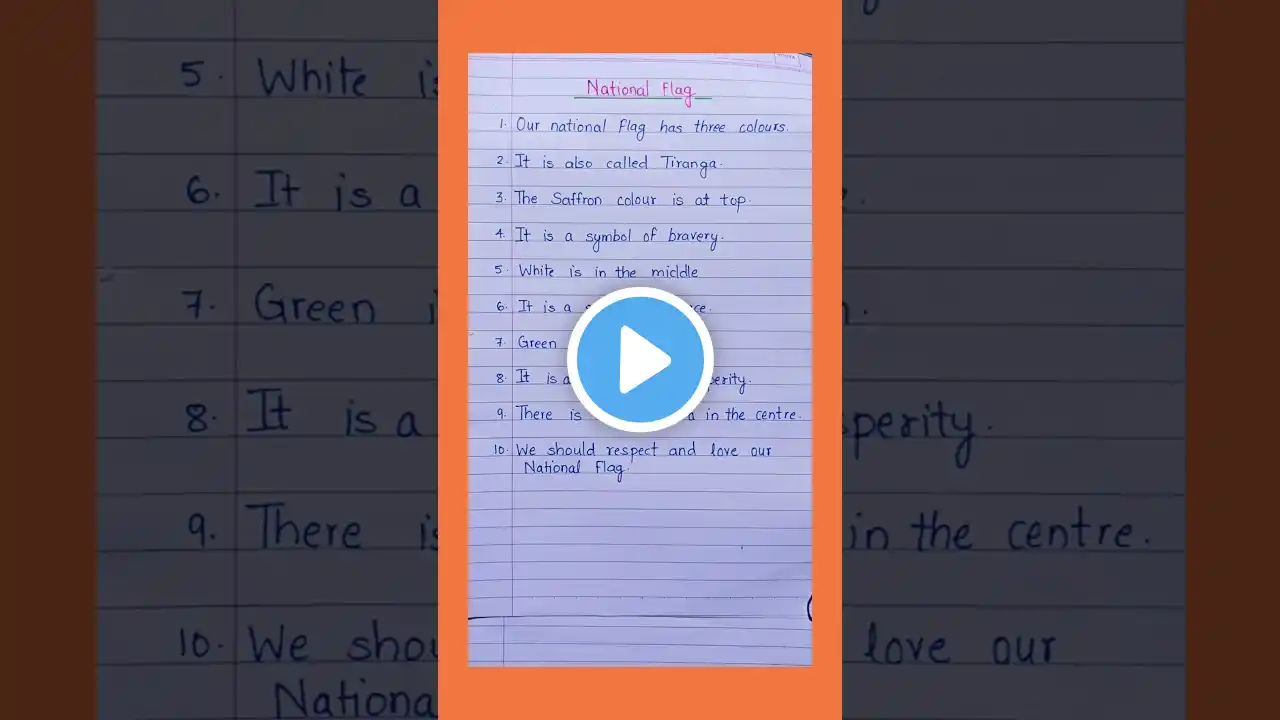 National Flag
1. Our national Flag has three colours.
2. It is also called Tiranga.
3. The Saffron colour is at top.
4. It is a symbol of bravery.
5. White is in the middle
6. It is a
7. Green
8. It is a
9. There is in the centre.
10. We should respect and love our
National Flag.